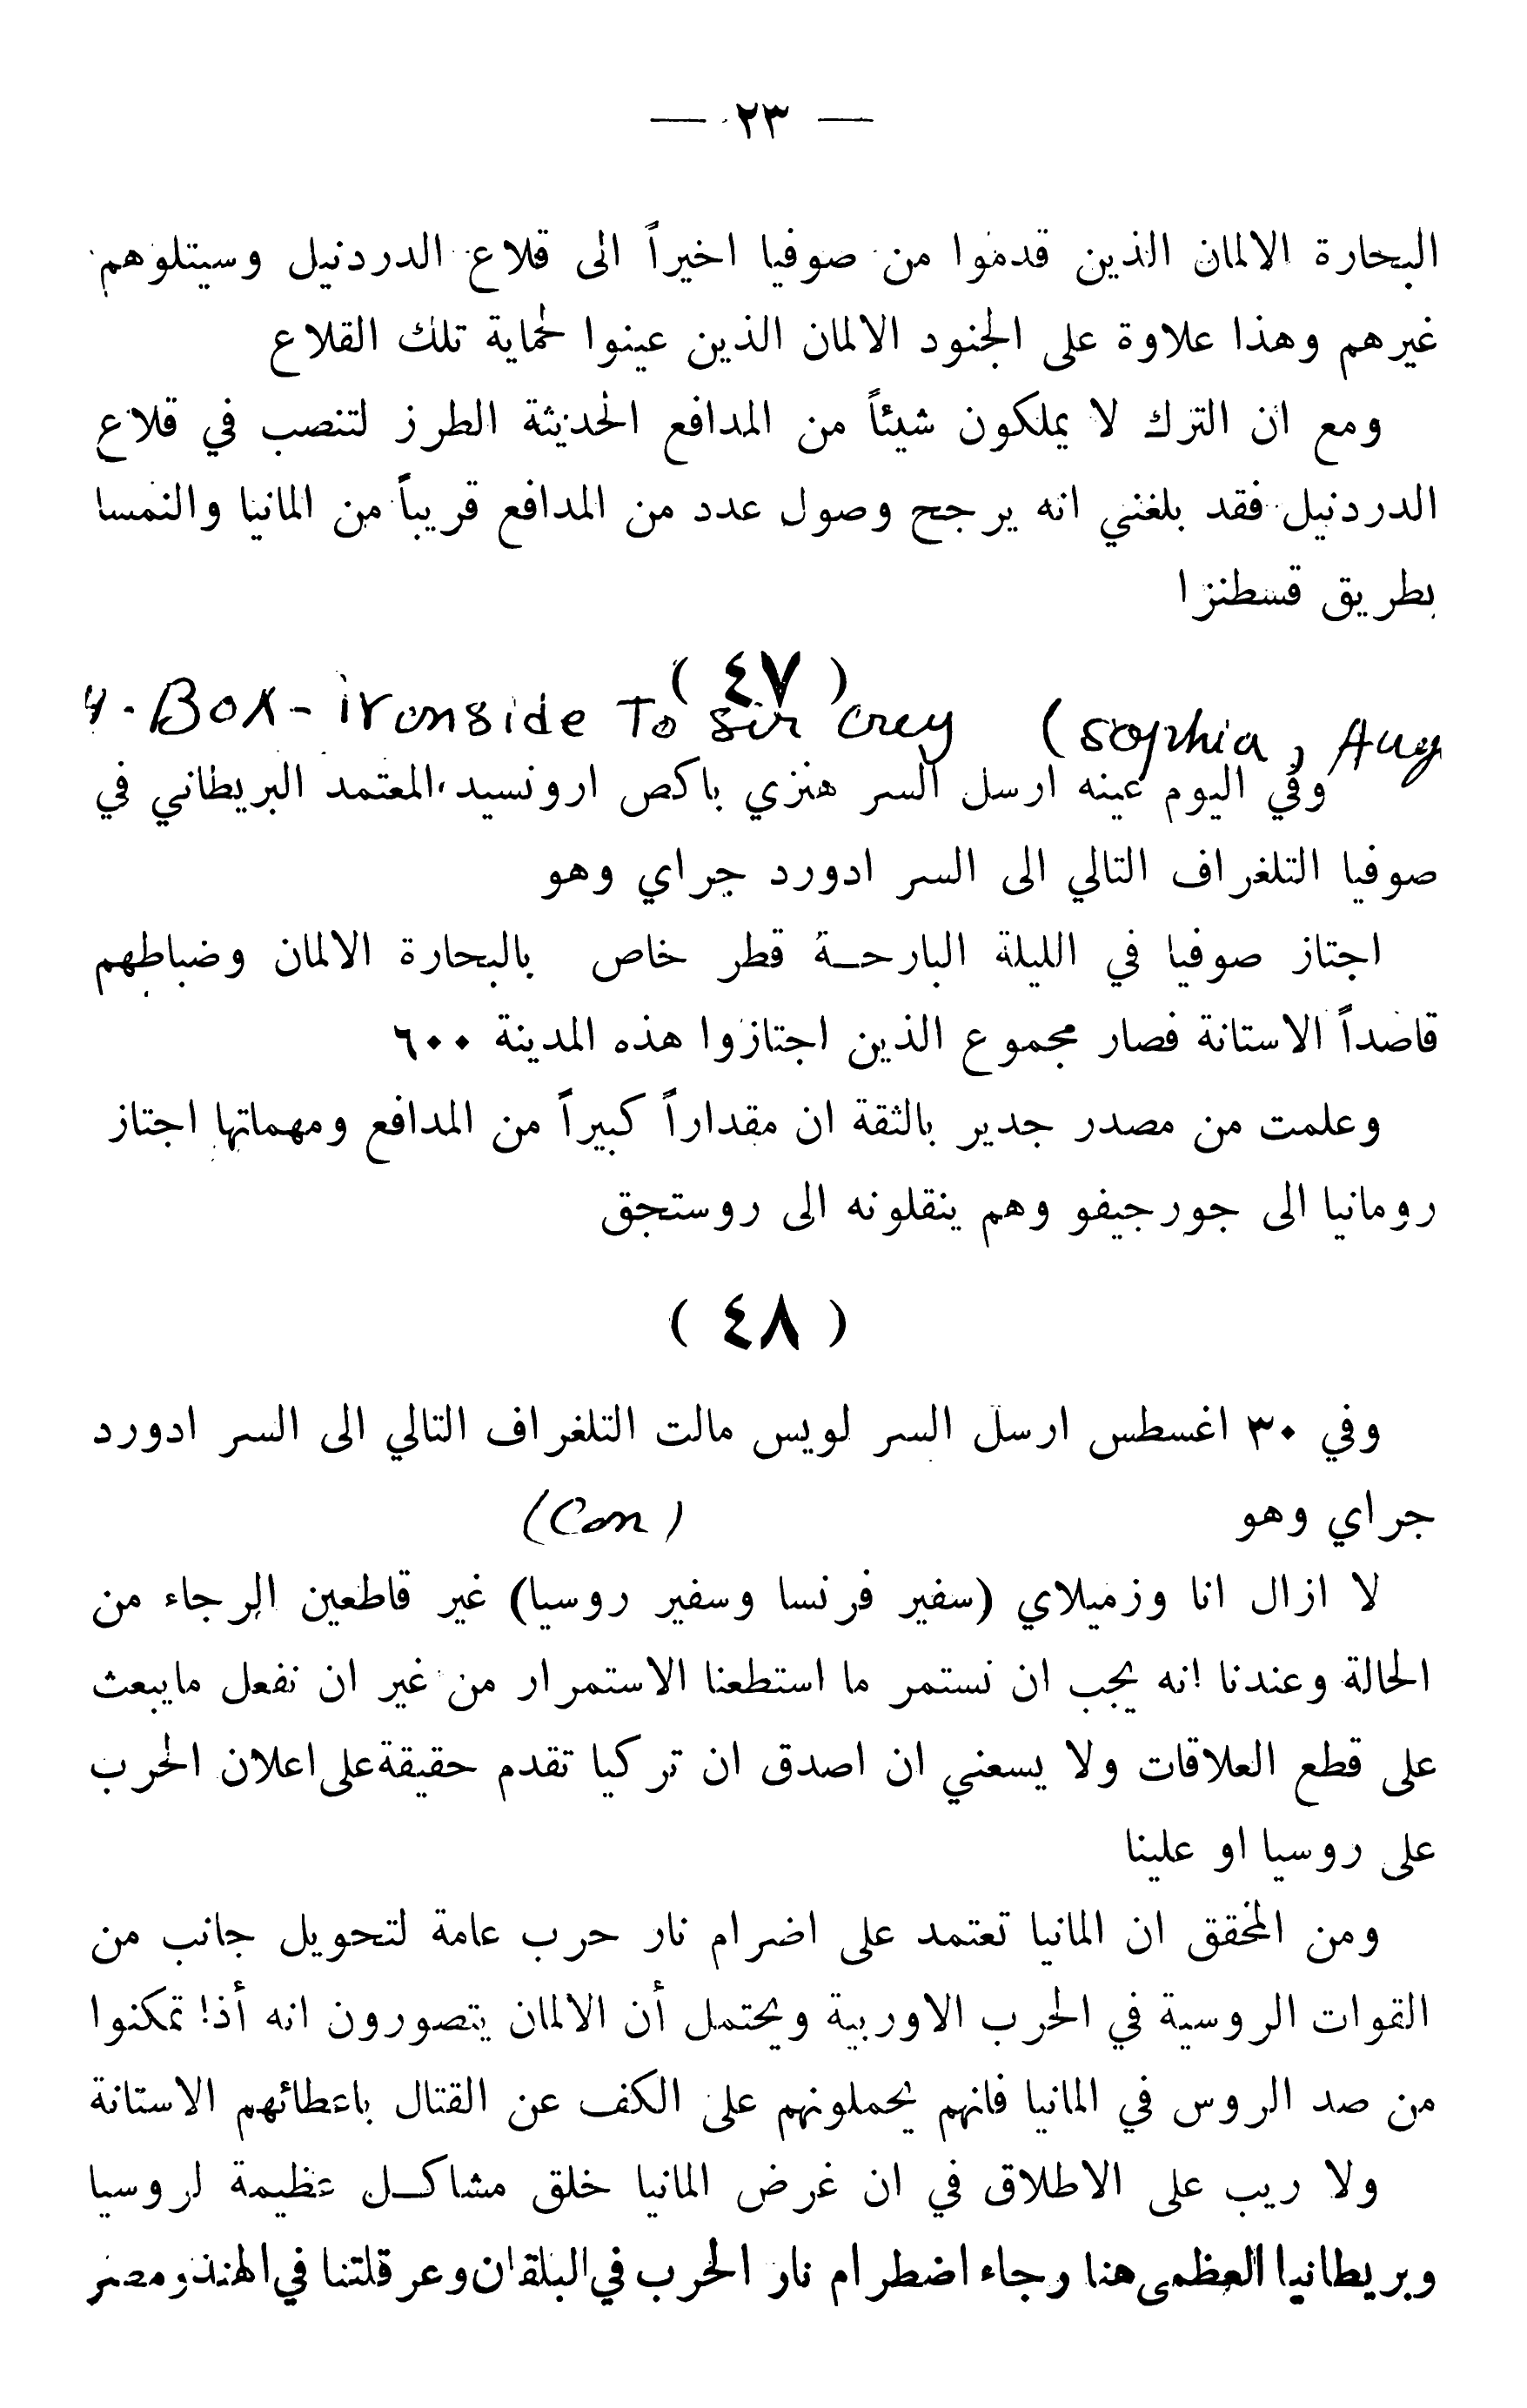 — ٢٣ —
البحارة الالمان الذين قدموا من صوفيا اخيراً الى قلاع الدردنيل وسيتلوهم
غيرهم وهذا علاوة على الجنود الالمان الذين عينوا لحماية تلك القلاع
ومع ان الترك لا يملكون شيئاً من المدافع الحديثة الطرز لتنصب في قلاع
الدردنيل فقد بلغني انه يرجح وصول عدد من المدافع قريباً من المانيا والنمسا
بطريق قسطنزا
( ٤٧ )
H. Box-ironside To Sir Grey (Sophia, Aug
وفي اليوم عينه ارسل السر هنري باكص ارونسيد المعتمد البريطاني في
صوفيا التلغراف التالي الى السر ادورد جراي وهو
اجتاز صوفيا في الليلة البارحـة قطر خاص بالبحارة الالمان وضباطهم
قاصداً الاستانة فصار مجموع الذين اجتازوا هذه المدينة ٦٠٠
وعلمت من مصدر جدير بالثقة ان مقداراً كبيراً من المدافع ومهماتها اجتاز
رومانيا الى جورجيفو وهم ينقلونه الى روستجق
( ٤٨ )
وفي ٣٠ اغسطس ارسل السر لويس مالت التلغراف التالي الى السر ادورد
جراي وهو (Con)
لا ازال انا وزميلاي (سفير فرنسا وسفير روسيا) غير قاطعين الرجاء من
الحالة وعندنا انه يجب ان نستمر ما استطعنا الاستمرار من غير ان نفعل مايبعث
على قطع العلاقات ولا يسعني ان اصدق ان تركيا تقدم حقيقة على اعلان الحرب
على روسيا او علينا
ومن المحقق ان المانيا تعتمد على اضرام نار حرب عامة لتحويل جانب من
القوات الروسية في الحرب الاوربية ويحتمل أن الالمان يتصورون انه أذا تمكنوا
من صد الروس في المانيا فانهم يحملونهم على الكف عن القتال باعطائهم الاستانة
ولا ريب على الاطلاق في ان غرض المانيا خلق مشاكـل عظيمة لروسيا
وبريطانيا العظمى هنا رجاء اضطرام نار الحرب في البلقان وعرقلتنا في الهند ومصر